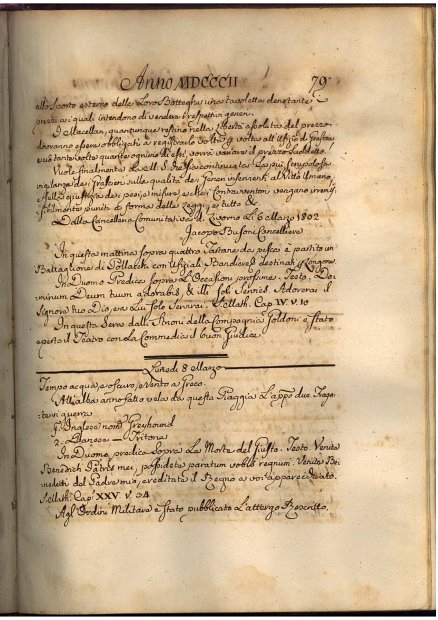 Anno MDCCCII 79
allo Sporto esterno delle Loro Botteghe una tavoletta denotante i
prezzi a i quali intendono di vendere i respettivi generi.
I Macellari, quantunque restino nella libertà assoluta del prezzo
dovranno essere obbligati a registrarlo volta p volta all'Ufizio di Grascia
e ciò tante volte quante ognuno di essi vorrà variare il prezzo suddetto.
Vuole finalmente la S. R. che sia continuata la più scrupolosa
vigilanza dei Grascieri sulla qualità dei Generi inservienti al Vitto Umano,
e sulla giustizia dei pesi, e misure, e che i Contravventori vengano irremis-
sibilmente puniti a forma delle Leggi; e tutto &c.
Dalla Cancelleria Comunitativa di Livorno Li 6 Marzo 1802
Jacopo Busoni Cancelliere
In questa mattina sopra quattro Tartane da pesca è partito un
Battaglione di Pollacchi con Ufiziali Bandiere &
In Duomo Predica sopra L'Occasioni prossime. Testo. Do-
minum Deum tuum adorabis, & illi soli Servies. Adorerai il
Signore tuo Dio, e a Lui solo Servirai. S. Matth. Cap. IV. V. 10
In questa Sera dalli Strioni della Compagnia Goldoni è stato
aperto il Teatro con la Commedia il buon Giudice.
Lunedi 8 Marzo
Tempo acqua, e oscuro, e Vento a Greco.
All'alba anno fatto vela da questa Spiaggia L'appo due Frega-
te in guerra.
1a Inglese nomta Greyhound
2a Danese — Tritone
In Duomo predica sopra La Morte del Giusto. Testo. Venite
Benedicti Patris mei, possidete paratum vobis regnum. Venite Be-
nedetti del Padre mio, ereditate il Regno a voi apparecchiato.
S. Matth. Cap. XXV. V. 34
Agl'Ordini Militare è stato pubblicato L'attergo Rescritto.